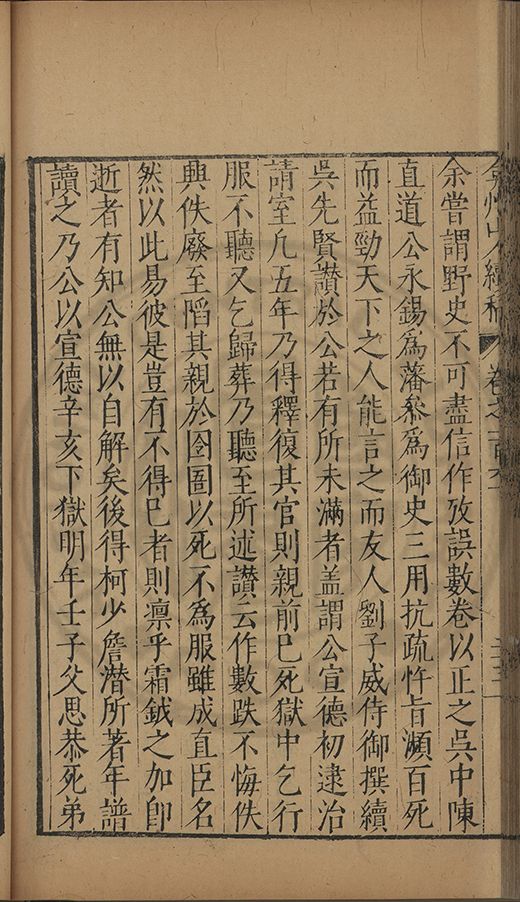 弇州山人續稿 卷之一百六十 二十三
余嘗謂野史不可盡信作攷誤數卷以正之吳中陳
直道公永錫爲藩叅爲御史三用抗疏忤旨瀕百死
而益勁天下之人能言之而友人劉子威侍御撰續
吳先賢讃於公若有所未滿者盖謂公宣德初逮治
請室凢五年乃得釋復其官則親前已死獄中乞行
服不聽又乞歸葬乃聽至所述讃云作數跌不悔佚
興佚廢至䧟其親於囹圄以死不爲服雖成直臣名
然以此易彼是豈有不得已者則凛乎霜鉞之加卽
逝者有知公無以自解矣後得柯少詹潜所著年譜
讀之乃公以宣德辛亥下獄明年壬子父思恭死弟